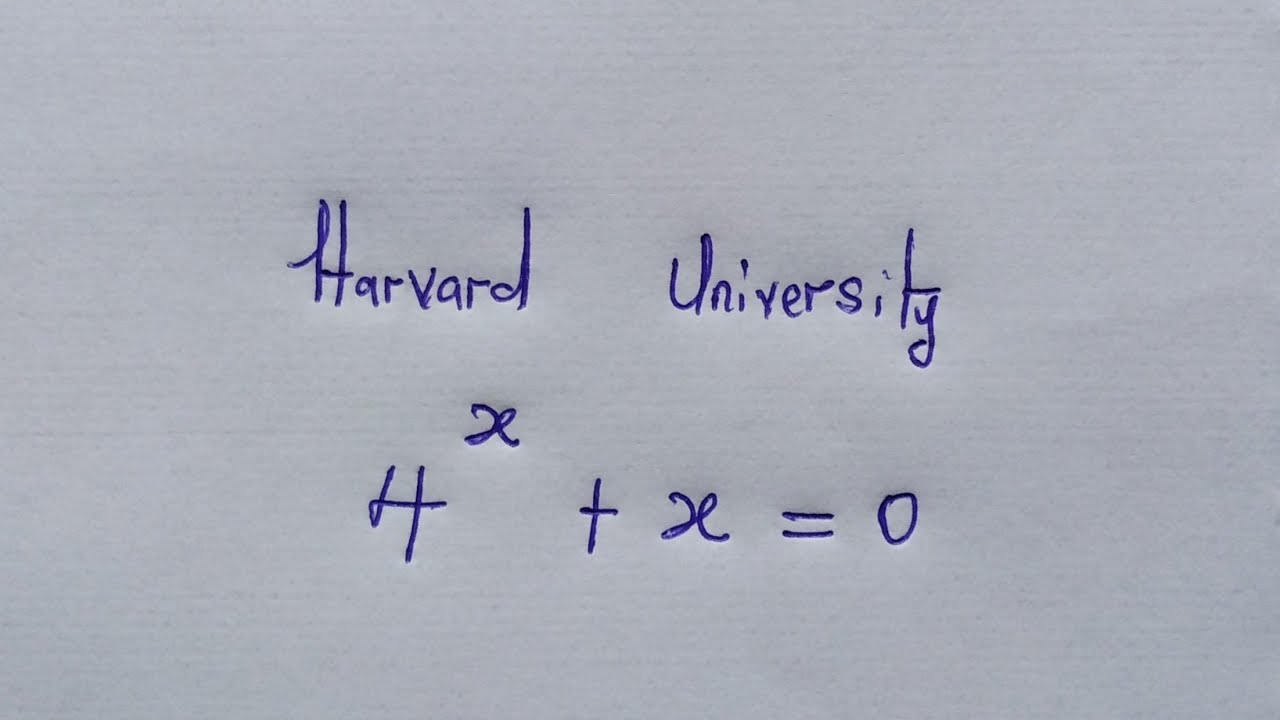 Harvard University
4^x + x = 0